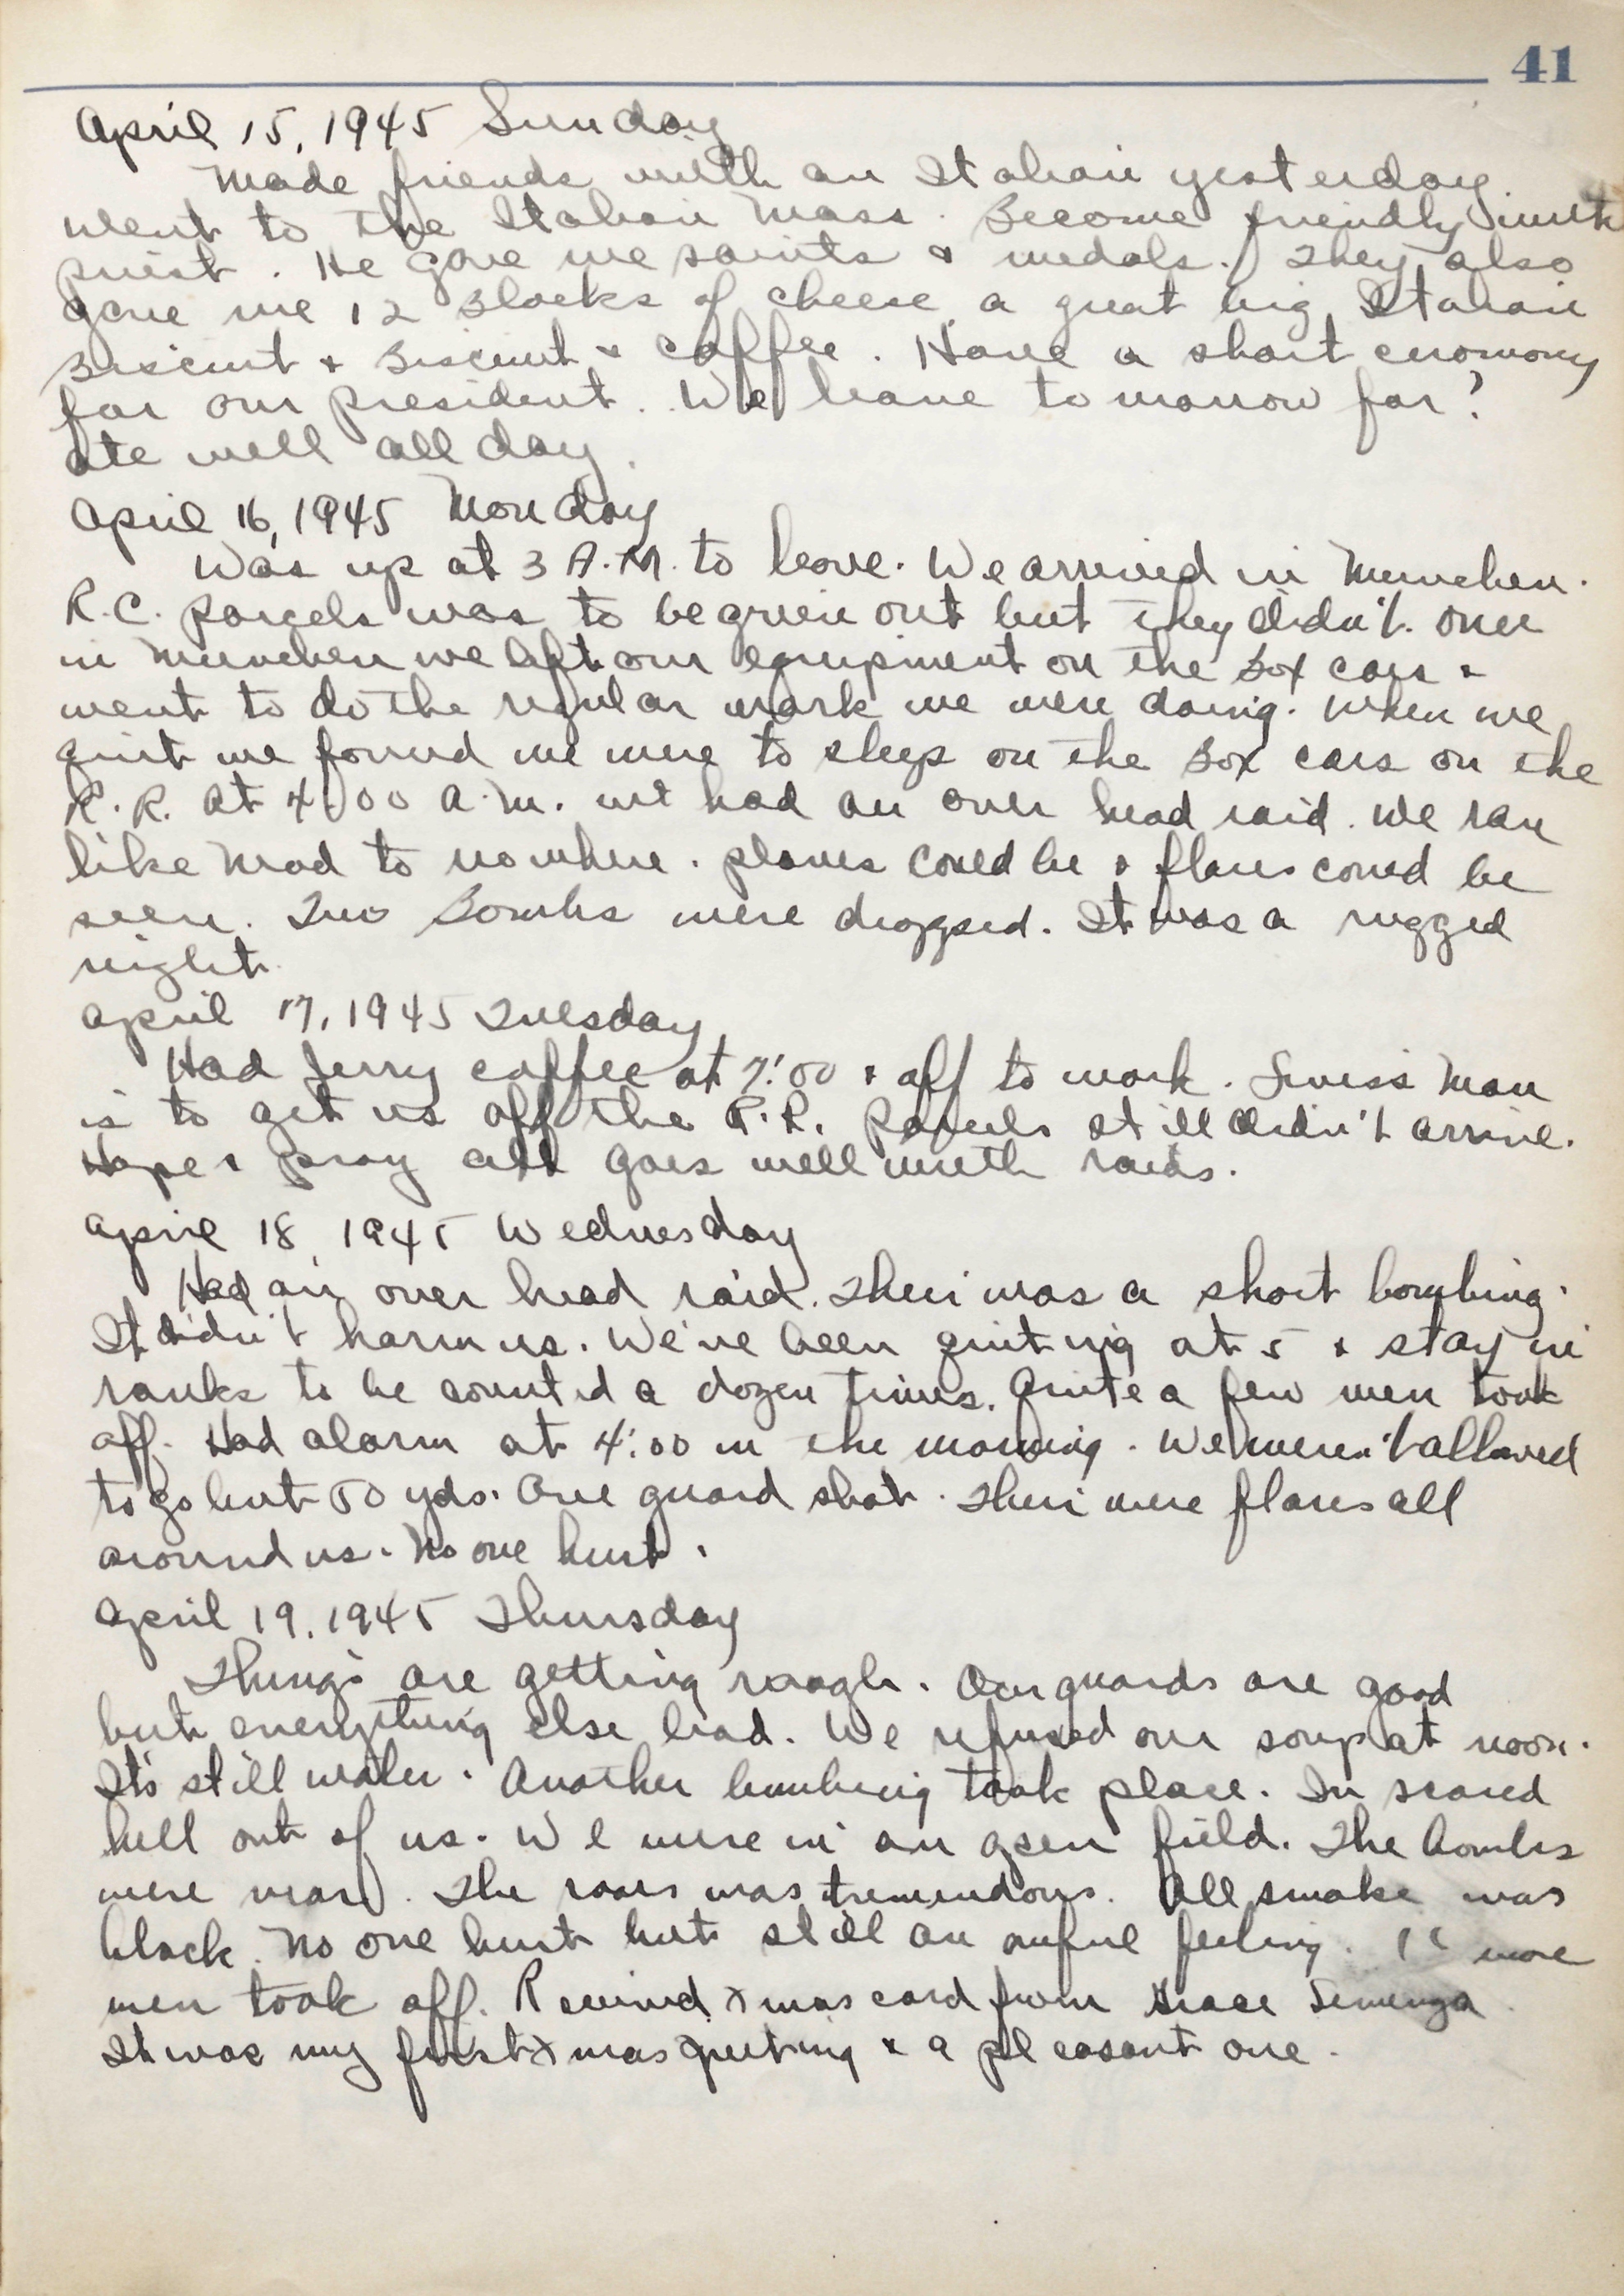 41
April 15, 1945 Sunday
Made friends with an Italian yesterday.
Went to the Italian Mass. Become friendly with
priest. He gave me saints & medals. They also
gave me 12 Blocks of cheese a great big Italian
Biscuit & Biscuit & coffee. Have a short ceromony
for our president. We leave tomorrow for?
Ate well all day.
April 16, 1945 Monday
Was up at 3 A.M. to leave. We arrived in Munchen.
R.C. parcels was to be given out but they didn't. Once
in Munchen we left our equipment on the Box cars &
went to do the regular work we were doing. When we
quit we found we were to sleep on the Box cars on the
R.R. At 4:00 a.m. we had an over head raid. We ran
like mad to nowhere. planes could be & flares could be
seen. Two Bombs were dropped. It was a rugged
night.
April 17, 1945 Tuesday
Had Jerry coffee at 7:00 & off to work. Swiss Man
is to get us off the R.R. Parcels still didn't arrive.
Hope & pray all goes well with raids.
April 18, 1945 Wednesday
Had air over head raid. Their was a short bombing.
It didn't harm us. We've been quiting at 5 & stay in
ranks to be counted a dozen times. Quite a few men took
off. Had alarm at 4:00 in the morning. We weren't allowed
to go but 50 yds. One guard shot. Their were flares all
around us. No one hurt.
April 19, 1945 Thursday
Things are getting rough. Our guards are good
but everything else bad. We refused our soup at noon.
It's still water. Another bombing took place. In scared
hell out of us. We were in an open field. The bombs
were near. The roar was tremendous. All smoke was
black. No one hurt but still an awful feeling. more
men took off. Received Xmas card from Grace
It was my first Xmas greeting & a pleasant one.